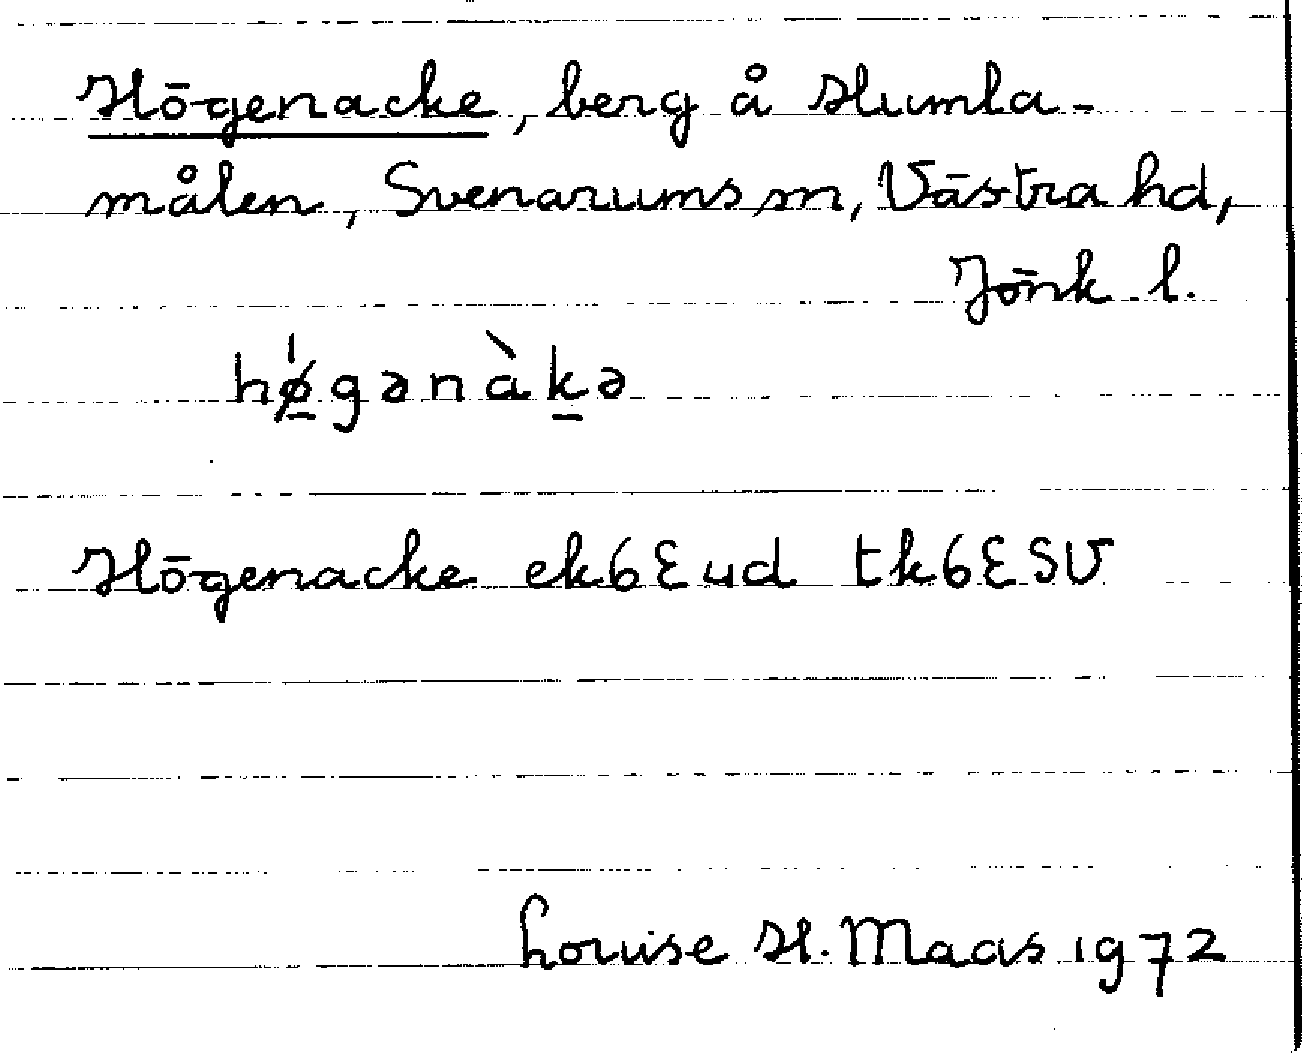 Högenacke, berg å Humla-
målen, Svenarums sn, Västra hd,
Jönk. l.
hǿ̲gənàk̲ə
Högenacke ek6Eud tk6ESV
Louise H. Maas 1972